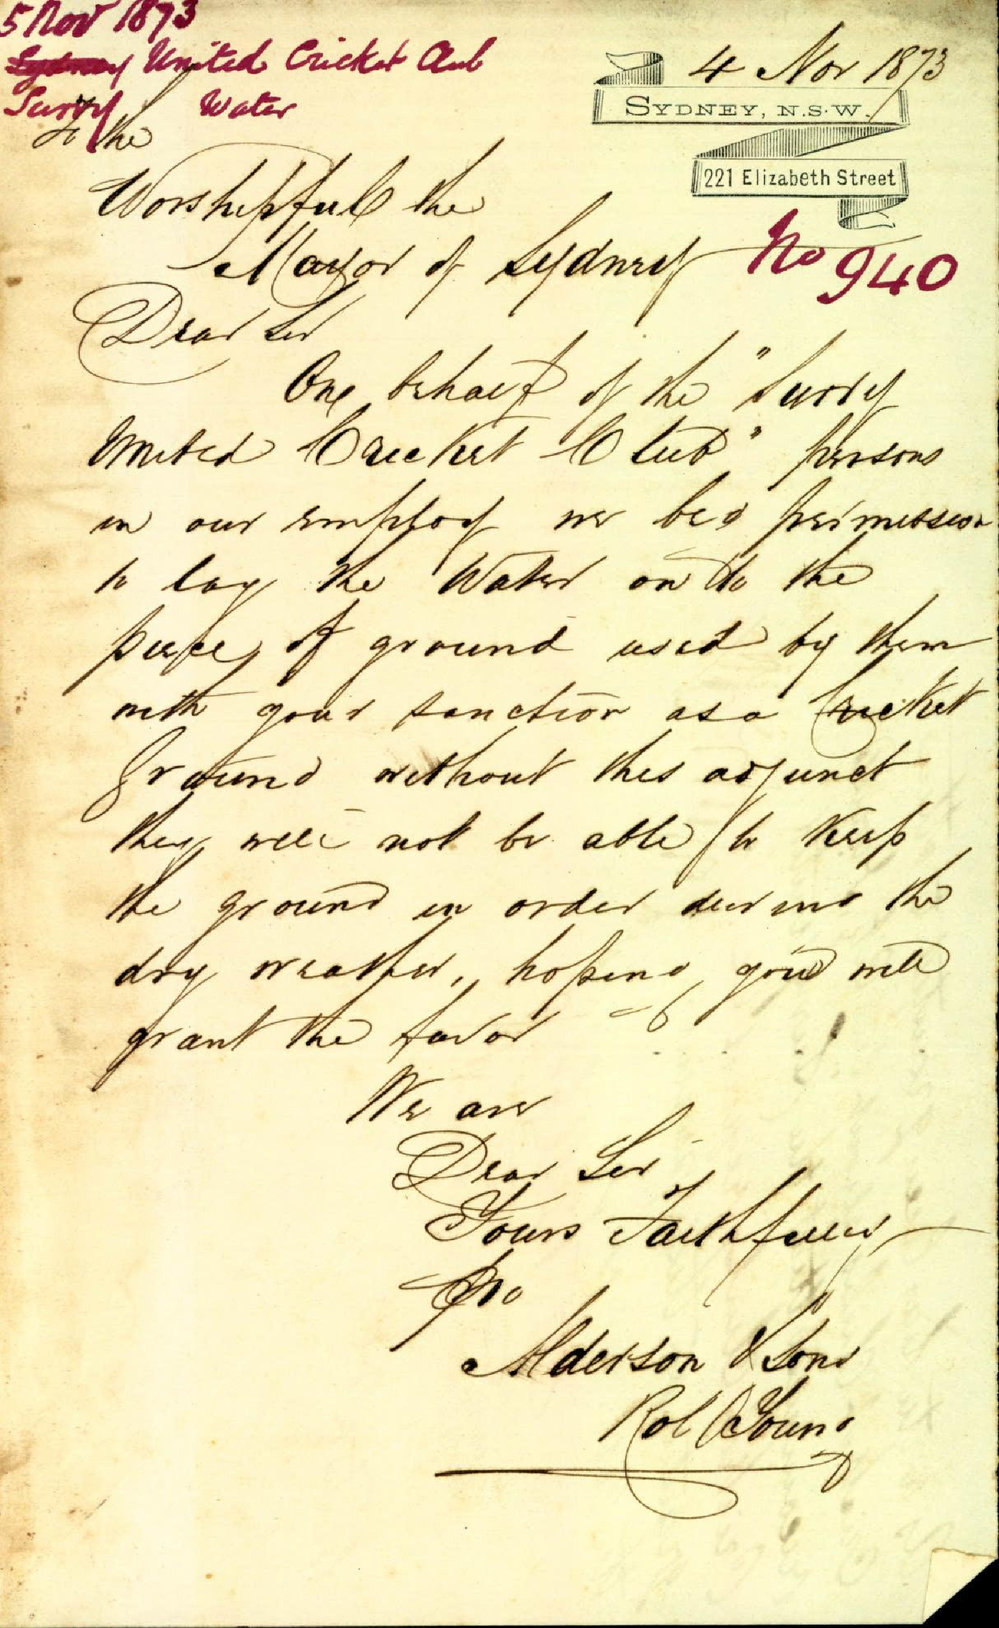 5 Nov 1873
Sydney United Cricket Club
Surry Water
4 Nov 1873
SYDNEY, N.S.W.
221 Elizabeth Street
To the
Worshipful the
Mayor of Sydney
No 940
Dear Sir
One behalf of the "Surry
United Cricket Club" persons
in our employ we beg permission
to lay the Water on to the
piece of ground used by them
with your sanction as a Cricket
Ground without this adjunct
they will not be able to keep
the ground in order during the
dry weather, hoping you will
grant the favor
We are
Dear Sir
Yours Faithfully
Pro
Alderson & Sons
Rob Young